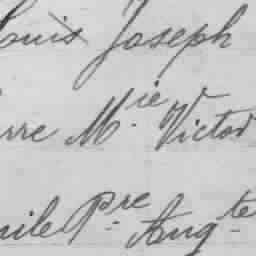 Louis Joseph
erre M.ie Victor
mile P.re Aug.te